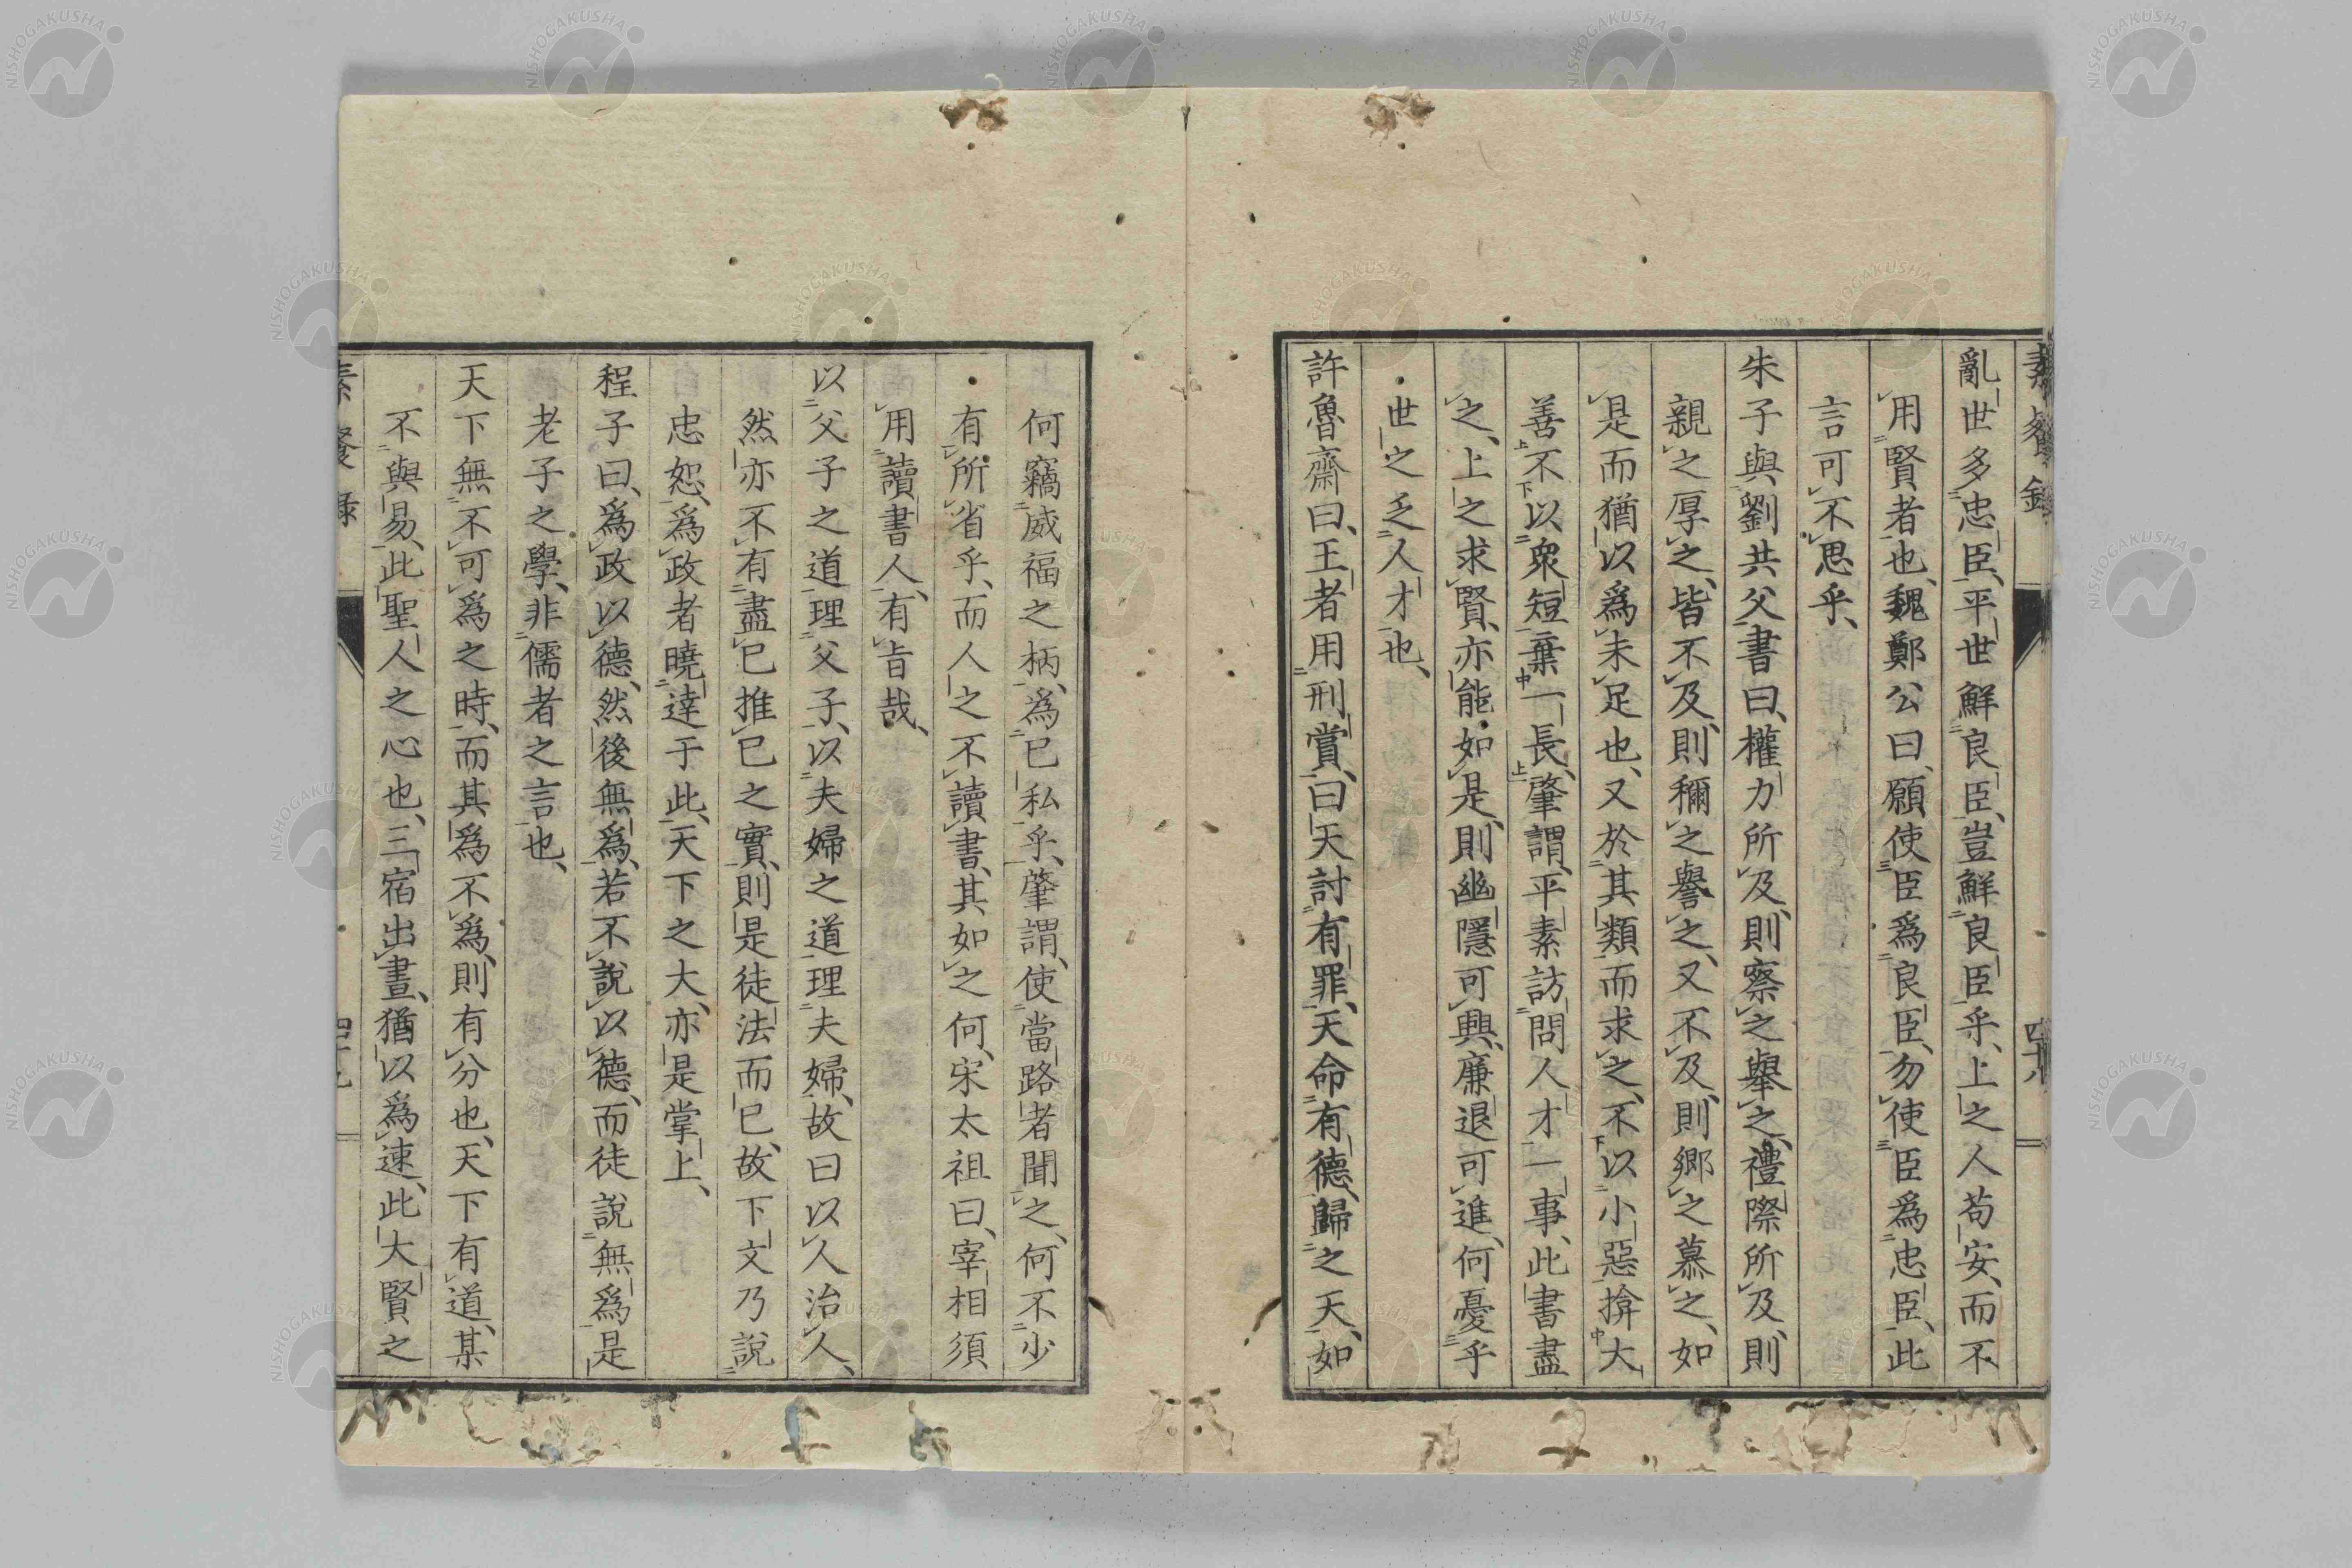 亂世多忠臣、平世鮮良臣、豈鮮良臣乎、上之人苟安、而不
用賢者也、魏鄭公曰、願使臣爲良臣、勿使臣爲忠臣、此
言可不思乎、
朱子與劉共父書曰、權力所及、則察之擧之、禮際所及、則
親之厚之、皆不及、則稱之譽之、又不及、則鄉之慕之、如
是而猶以爲未足也、又於其類而求之、不以小惡揜大
善、不以衆短棄一長、肇謂、平素訪問人才一事、此書盡
之、上之求賢、亦能如是、則幽隱可興、廉退可進、何憂乎
世之乏人才也、
許魯齋曰、王者用刑賞、曰天討有罪、天命有德、歸之天、如
何竊威福之柄、爲已私乎、肇謂、使當路者聞之、何不少
有所省乎、而人之不讀書、其如之何、宋太祖曰、宰相須
用讀書人、有旨哉、
以父子之道理父子、以夫婦之道理夫婦、故曰以人治人、
然亦不有盡已推已之實、則是徒法而已、故下文乃說
忠恕、爲政者曉達于此、天下之大、亦是掌上、
程子曰、爲政以德、然後無爲、若不說以德、而徒說無爲、是
老子之學、非儒者之言也、
天下無不可爲之時、而其爲不爲、則有分也、天下有道、某
不與易、此聖人之心也、三宿出晝、猶以爲速、此大賢之
素餐錄
四十八
NISHOGAKUSHA